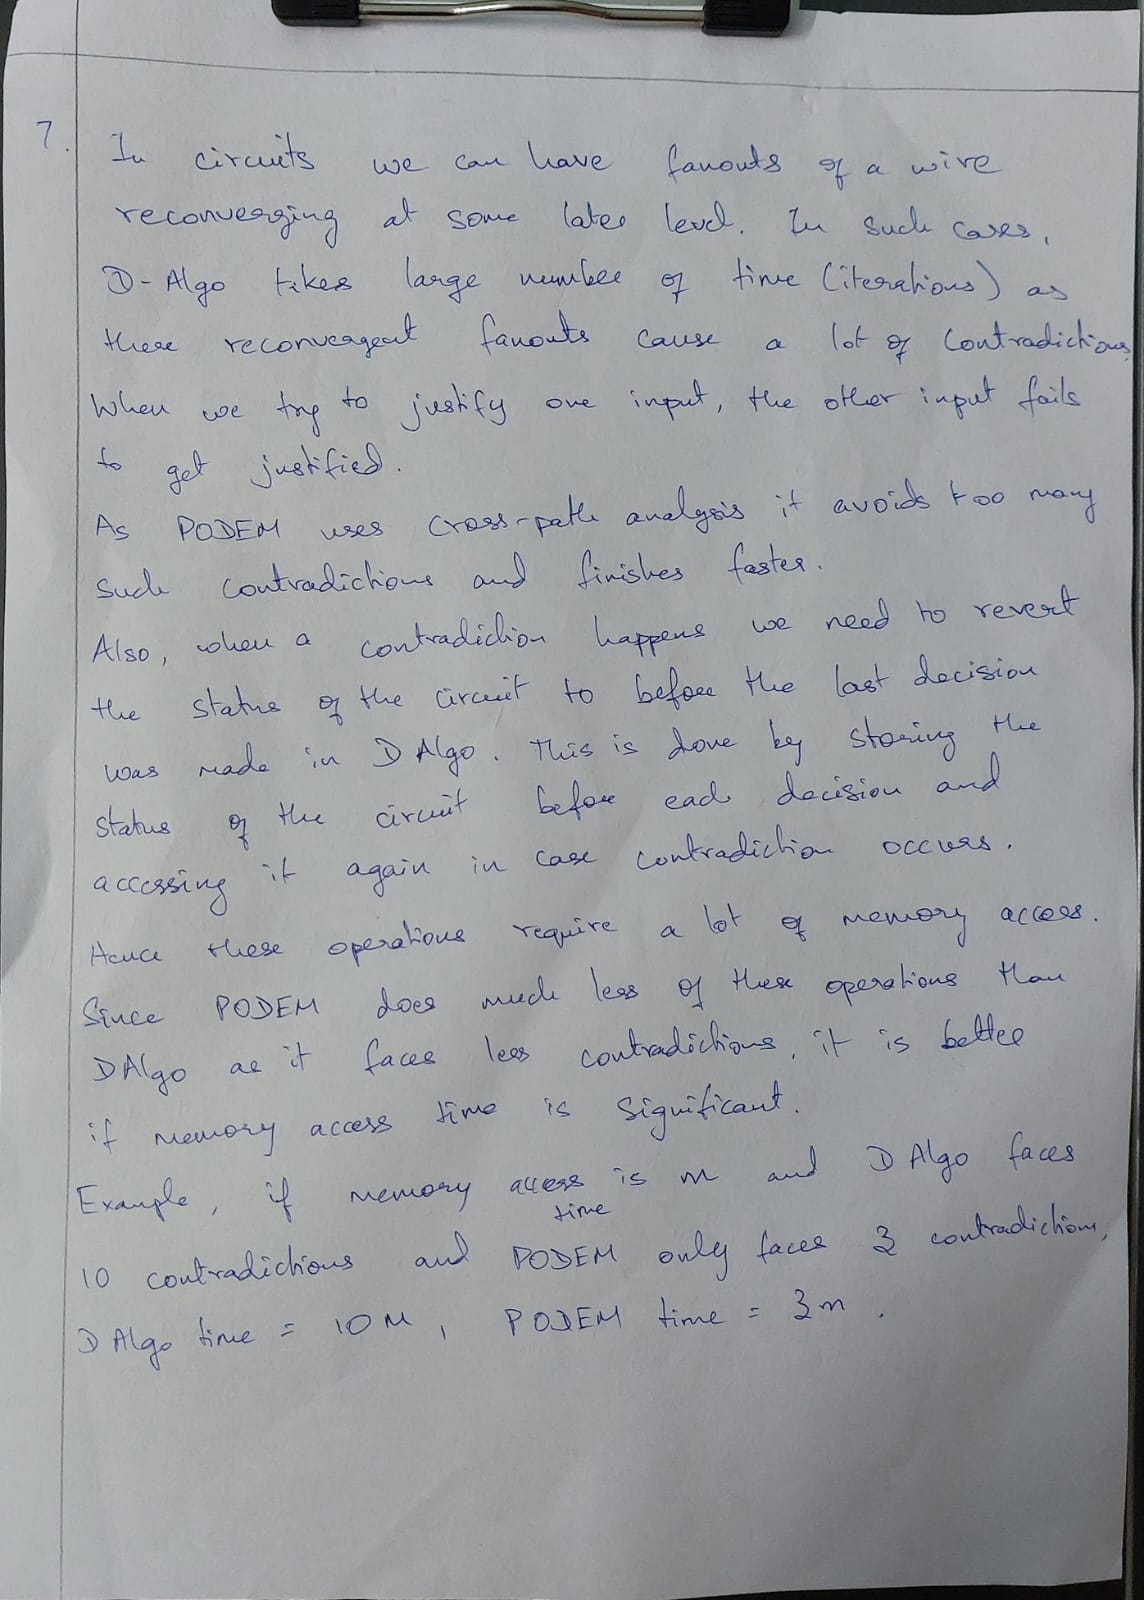 7.
In circuits we can have fanouts of a wire
reconverging at some later level. In such cases,
D-Algo takes large number of time (iterations) as
these reconvergent fanouts cause a lot of contradictions.
When we try to justify one input, the other input fails
to get justified.
As PODEM uses cross-path analysis it avoids too many
such contradictions and finishes faster.
Also, when a contradiction happens we need to revert
the status of the circuit to before the last decision
was made in D Algo. This is done by storing the
status of the circuit before each decision and
accessing it again in case contradiction occurs.
Hence these operations require a lot of memory access.
Since PODEM does much less of these operations than
DAlgo as it faces less contradictions, it is better
if memory access time is significant.
Example, if memory access time is m and D Algo faces
10 contradictions and PODEM only faces 3 contradictions,
D Algo time = 10m, PODEM time = 3m.